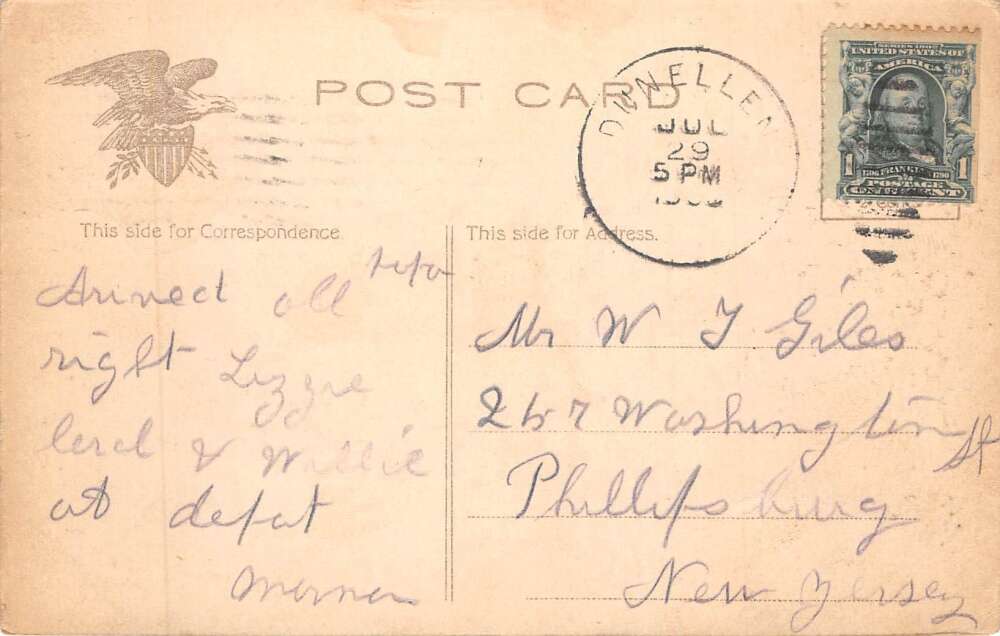 POST CARD
DUNELLEN
JUL
29
5 PM
SERIES 1902
UNITED STATES OF
AMERICA
1 FRANKLIN 1
1706 1790
POSTAGE
ONE CENT
This side for Correspondence.
This side for Address.
Arived all
right Lizzie
& Willie
at depot
Mr W T Giles
Washington St
Phillipsburg
New Jersey